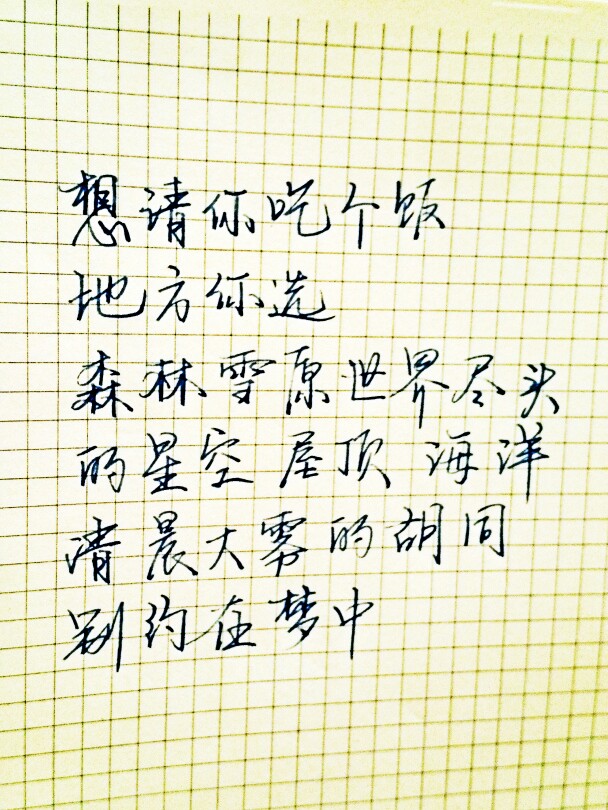 想请你吃个饭
地方你选
森林雪原世界尽头
的星空 屋顶 海洋
清晨大雾的胡同
别约在梦中